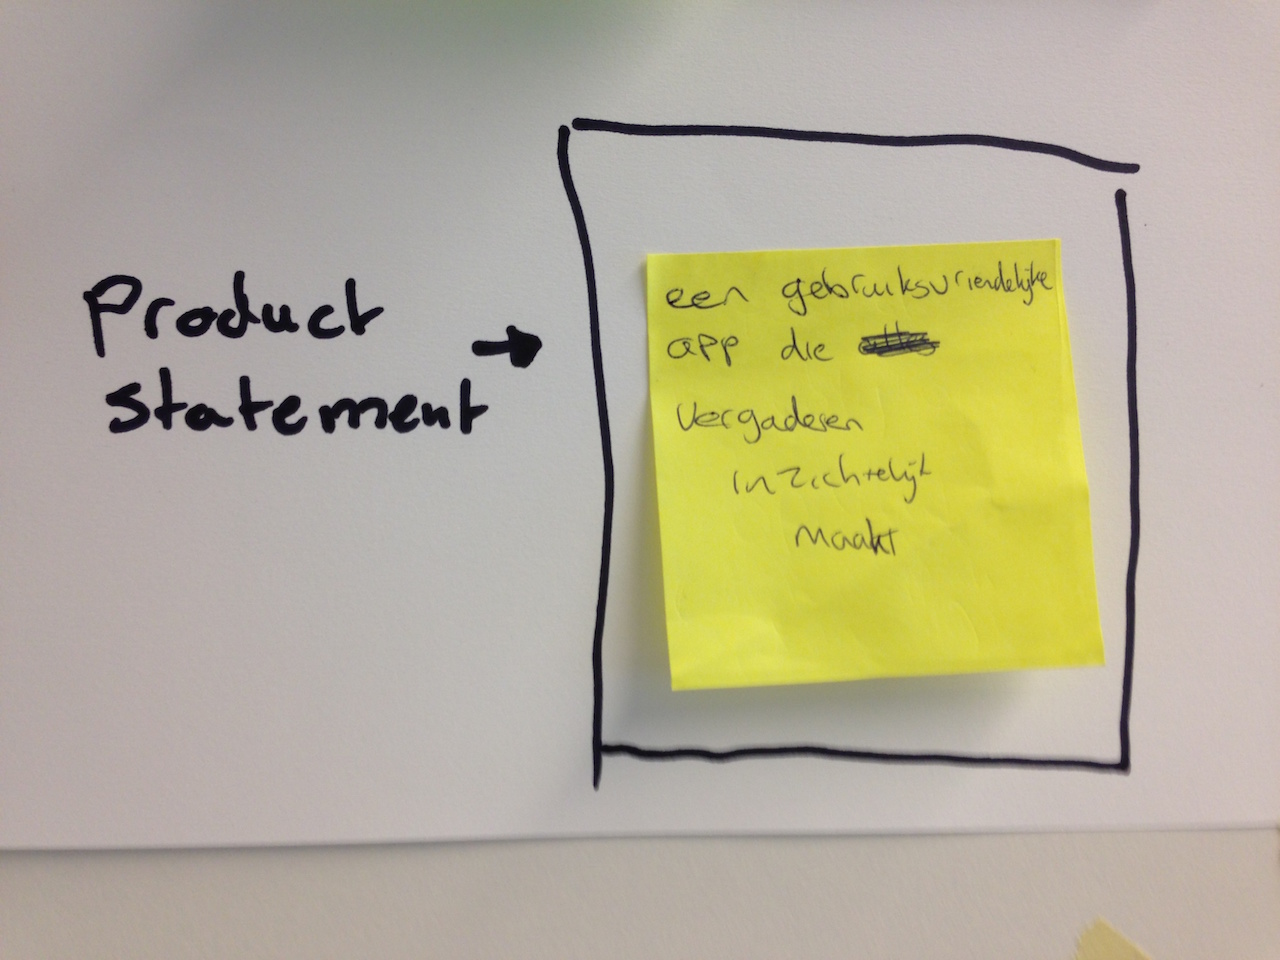 Product
statement
een gebruiksvriendelijke
app die
vergaderen
inzichtelijk
maakt